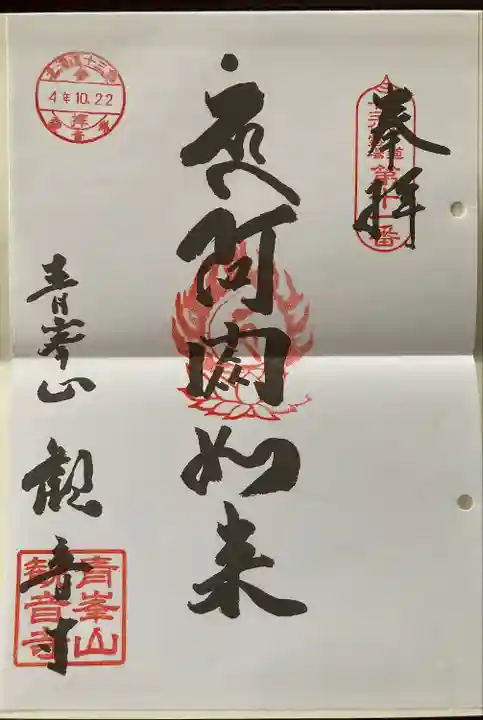 奉拝
第十一番
阿閦如来
4年10.22
青峯山
観音寺
青峯山
観音寺